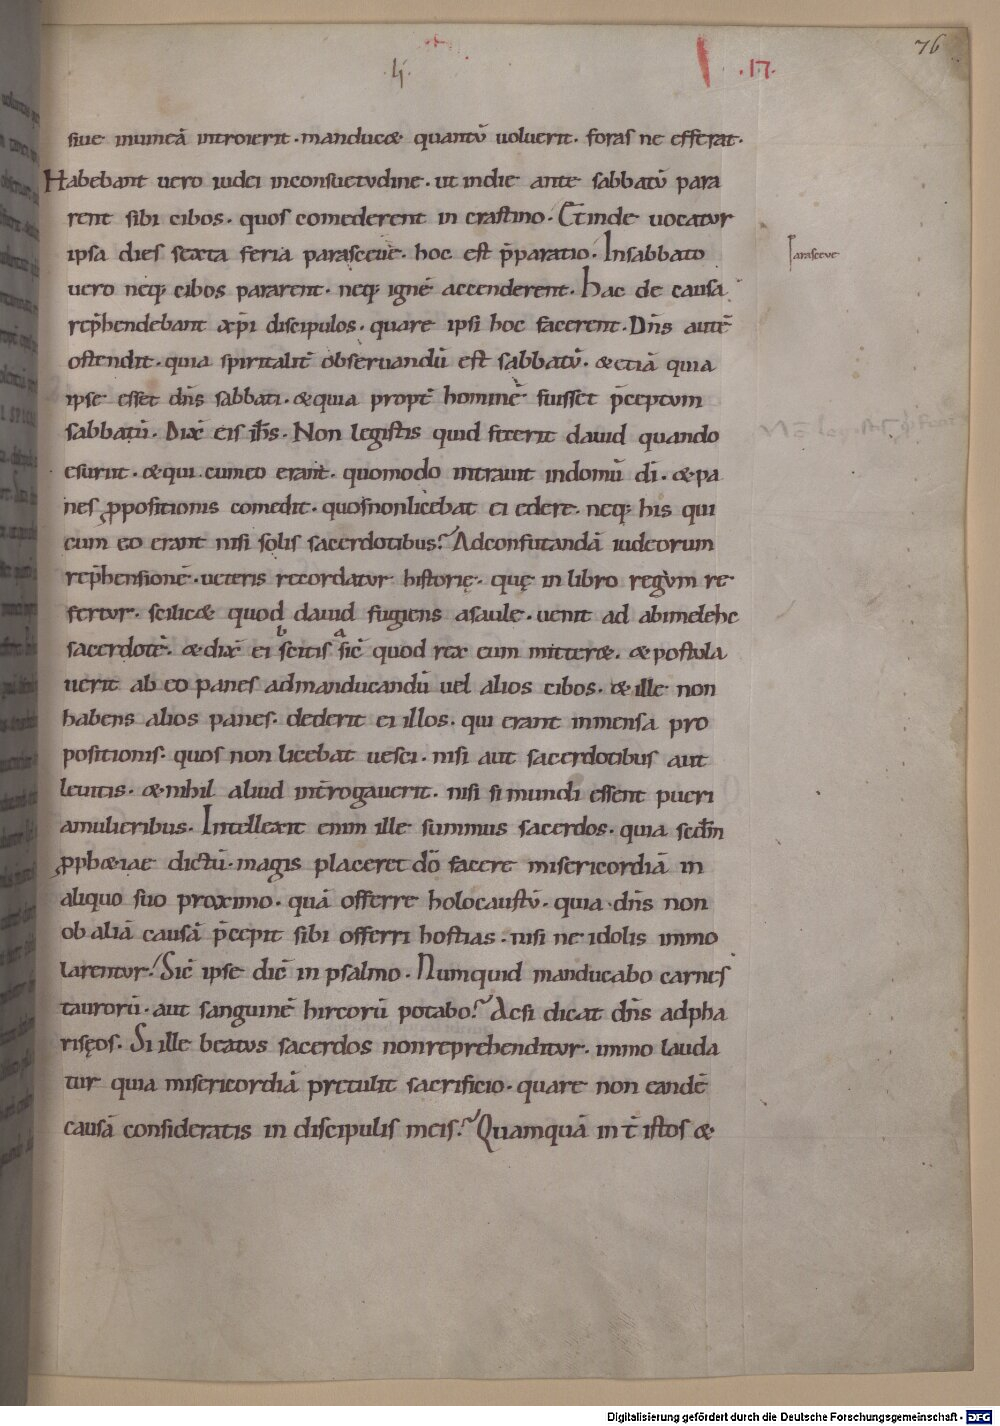 76
.ij. .II.
siue inuineā introierit · manducæ quantū uoluerit · foras ne efferat ·
Habebant uero iudei inconsuetudine · ut indie ante sabbatū para
rent sibi cibos · quos comederent in crastino · Et inde uocatur
ipsa dies sexta feria parasceue · hoc est p̄paratio · Insabbato
Parasceue
uero neq; cibos pararent · neq; ignē accenderent · hac de causa
rep̄hendebant xp̄i discipulos · quare ipsi hoc facerent · Dn̄s autē
ostendit · quia spiritalit̄ obseruandū est sabbatū · & etiā quia
ipse esset dn̄s sabbati · & quia propt̄ hominē fuisset p̄ceptum
sabbatū · Dix̄ eis ih̄s · Non legistis quid fecerit dauid quando
esuriit · & qui cumeo erant · quomodo intrauit indomū dī · & pa
nes ꝓpositionis comedit · quosnonlicebat ei edere · neq; his qui
cum eo erant nisi solis sacerdotibus? Adconfutandā iudeorum
rep̄hensionē · ueteris recordatur historię · quę in libro regum re
fertur · scilicæ quod dauid fugiens asaule · uenit ad abimelehc
sacerdotē · & dix̄ ei scitis sic̄ quod rex cum mitteræ · & postula
uerit ab eo panes admanducandū uel alios cibos · & ille non
habens alios panes · dederit ei illos · qui erant inmensa pro
positionis · quos non licebat uesci · nisi aut sacerdotibus aut
leuitis · & nihil aliud int̄rogauerit · nisi si mundi essent pueri
amulieribus · Intellexit enim ille summus sacerdos · quia scdm̄
ꝓphætae dictū · magis placeret dō facere misericordiā in
aliquo suo proximo · quā offerre holocaustū · quia dn̄s non
ob aliā causā p̄cepit sibi offerri hostias · nisi ne idolis immo
larentur! Sic̄ ipse dic̄ in psalmo · Numquid manducabo carnes
taurorū · aut sanguinē hircorū potabo? Acsi dicat dn̄s adpha
risęos · Si ille beatus sacerdos nonreprehenditur · immo lauda
tur quia misericordiā pretulit sacrificio · quare non eandē
causā consideratis in discipulis meis? Quamquā int̄ istos &
Digitalisierung gefördert durch die Deutsche Forschungsgemeinschaft - DFG